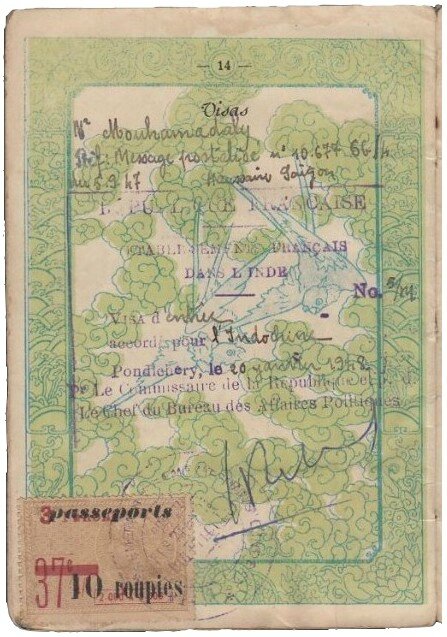 — 14 —
Visas
Nº Mouhamadaly
Réf: Message postal dde nº 10.674
du 5.9.47 Saïgon
REPUBLIQUE FRANCAISE
ETABLISSEMENTS FRANÇAIS
DANS L'INDE
No.
Visa d'entrée
accordé pour l'Indochine
Pondichéry, le 20 janvier 1948
Pr Le Commissaire de la République et p. d.
Le Chef du Bureau des Affaires Politiques
passeports
37
10 roupies